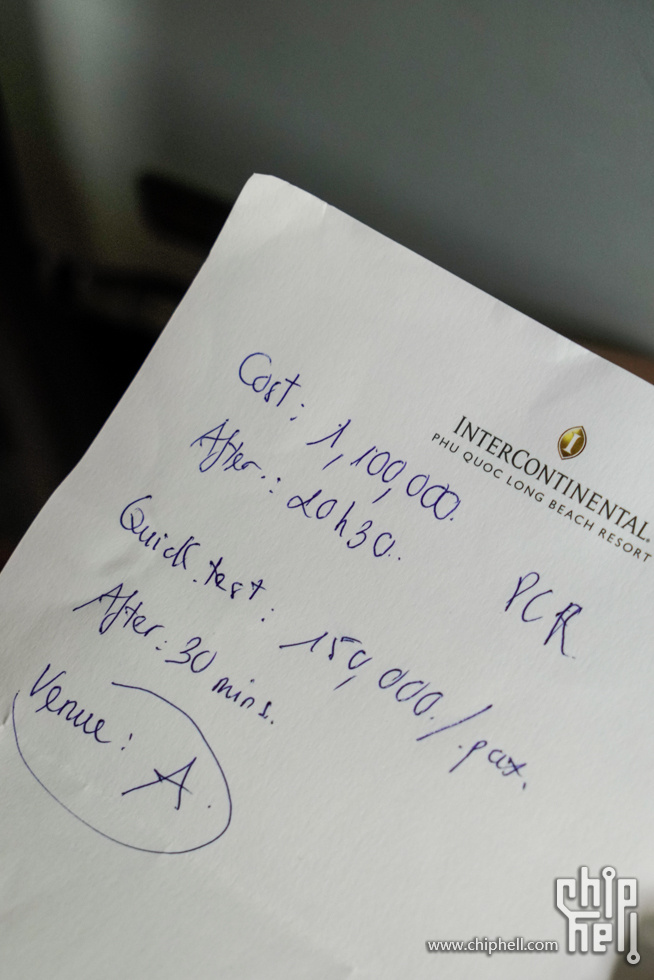 INTERCONTINENTAL.
PHU QUOC LONG BEACH RESORT
PCR
Cost: 1,100,000.
After.: 20h30.
Quick test: 150,000/pax.
After: 30 mins.
Venue: A.
chip
hell
www.chiphell.com